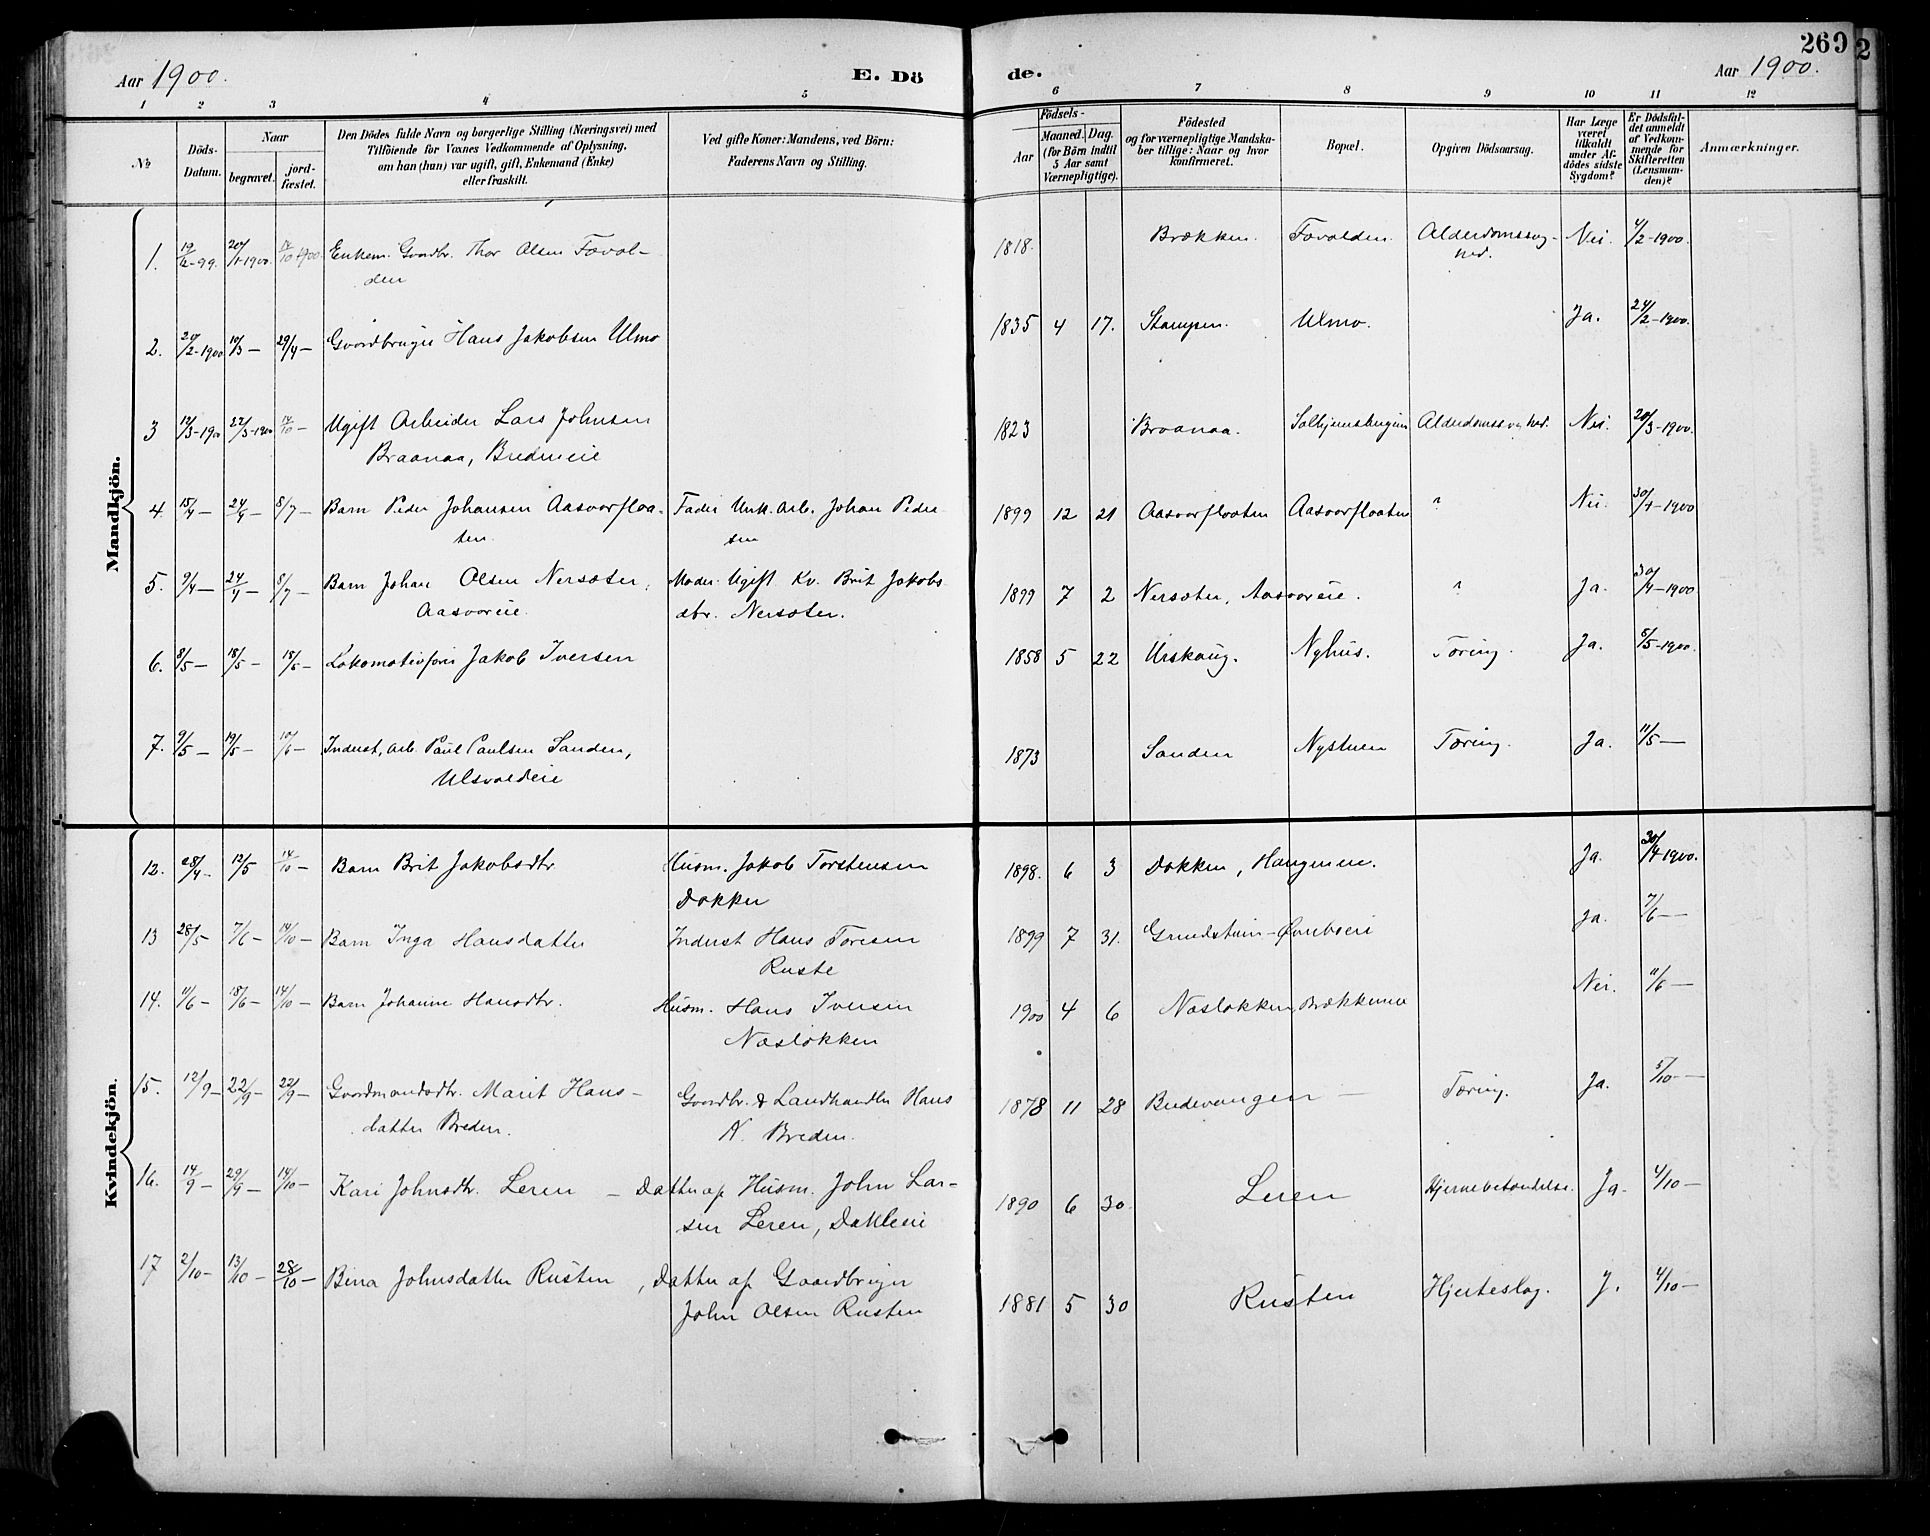 269
2
Aar 1900.
E. Dö
de.
Aar 1900.
1 2 3 4 5 6 7 8 9 10 11 12
No
Döds-
Datum.
Naar
begravet.
jord-
fæstet.
Den Dödes fulde Navn og borgerlige Stilling (Næringsvei) med
Tilföiende for Voxnes Vedkommende af Oplysning,
om han (hun) var ugift, gift, Enkemand (Enke)
eller fraskilt.
Ved gifte Koner: Mandens, ved Börn:
Faderens Navn og Stilling.
Födsels-
Aar
Maaned.
Dag.
(for Börn indtil
5 Aar samt
Værnepligtige).
Födested
og for værnepligtige Mandska-
ber tillige: Naar og hvor
konfirmeret.
Bopæl.
Opgiven Dödsaarsag.
Har Læge
været
tilkaldt
under Af-
dödes sidste
Sygdom?
Er Dödsfal-
det anmeldt
af Vedkom-
mende for
Skifteretten
(Lensman-
den)?
Anmærkninger.
Mandkjön.
1. 19/6-99 20/1-1900 14/10 1900 Enkem. Gaardbr. Thor Olsen Tovol-
den
1818. Brækken. Tovolden. Alderdomssvag-
hed. Nei. 4/2-1900.
2. 20/2-1900 10/3- 29/4- Gaardbruger Hans Jakobsen Ulmo
1835 4 17. Stampen. Ulmo. Ja. 24/2-1900.
3 12/3-1900 22/3-1900 14/10- Ugift Arbeider Lars Johnsen
Braanaa, Bredeneie
1823 Braanaa. Alderdomssvaghed. Nei. 20/3-1900.
4. 15/4- 24/4- 8/7- Barn Peder Johansen Aasaarfloa-
ten. Fader Unk. Arb. Johan Peder
sen
1899 12 21 Aasaarfloaten Aasaarfloaten ? Nei. 30/4-1900
5. 9/4- 24/4- 8/7- Barn Johan Olsen Nersæter,
Aasaareie. Moder. Ugift Kv. Brit Jakobs
dtr. Nersæter.
1899 7 2 Nersæter, Aasaareie. ? Ja. 30/4-1900
6. 8/5- 18/5- 18/5- Lokomotivförer Jakob Iversen
1858 5 22 Urskoug. Nyhus. Tæring. Ja. 8/5-1900.
7. 9/5- 19/5- 10/6- Indust. arb. Paul Paulsen Sanden,
Ulsvoldeie
1873 Sanden Nystuen Tæring. Ja. 11/5-
Kvindekjön.
12. 28/4- 12/5 14/10- Barn Brit Jakobsdtr. Husm. Jakob Torstensen
Dokken
1898. 6 3 Dokken, Haugeneie. Ja. 30/4-1900.
13 28/5 7/6- 14/10- Barn Inga Hansdatter Indust Hans Toresen
Ruste
1899 7 31. Ja. 7/6-
14. 11/6- 18/6- 14/10- Barn Johanne Hansdtr. Husm. Hans Iversen
Næsløkken
1900 4 6 Næsløkken, Brækkeneie Nei. 11/6-
15. 12/9- 22/9- 22/9- Gaardmandsdtr. Marit Hans-
datter Breden. Gaardbr. & Landhandler Hans
N. Breden.
1878 11 28 Bredevangen - Tæring. Ja. 5/10-
16. 14/9- 29/9- 14/10- Kari Johnsdtr. Leren - Datter af Husm. John Lar-
sen Leren, Dahleeie
1890 6 30 Leren Hjernebetændelse. Ja. 4/10-
17 2/10- 13/10- 28/10- Bina Johnsdatter Rusten, Datter af Gaardbruger
John Olsen Rusten
1881 5 30 Rusten Hjerteslag. J. 4/10-